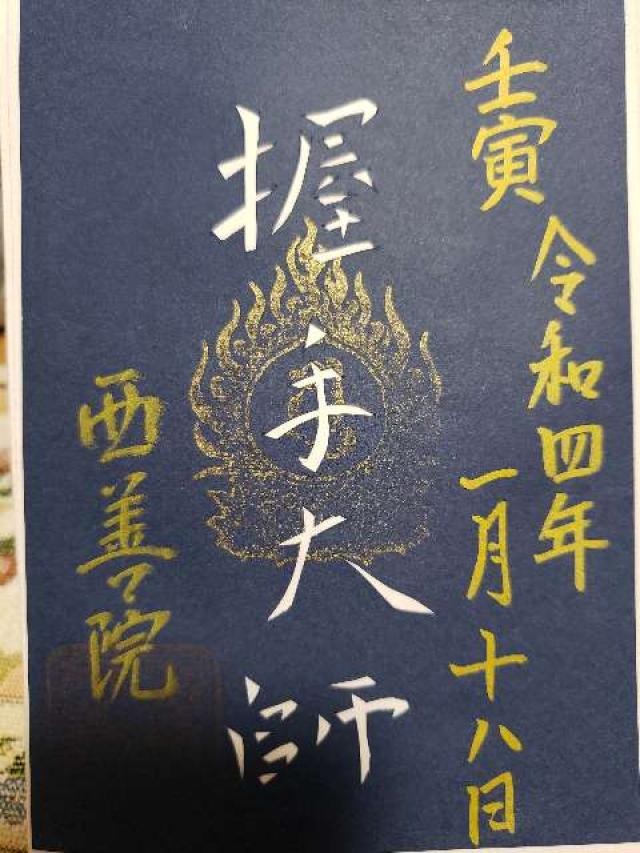 壬寅
令和四年
一月十八日
握手大師
西善院